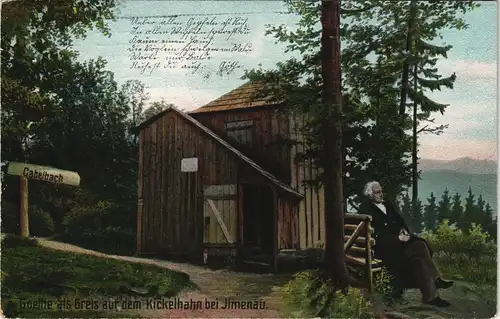 Ueber allen Gipfeln ist Ruh,
In allen Wipfeln spürest du
Kaum einen Hauch;
Die Vöglein schweigen im Walde,
Warte nur Balde
Ruhest du auch. Göthe
Gabelbach
Goethe als Greis auf dem Kickelhahn bei Jlmenau.